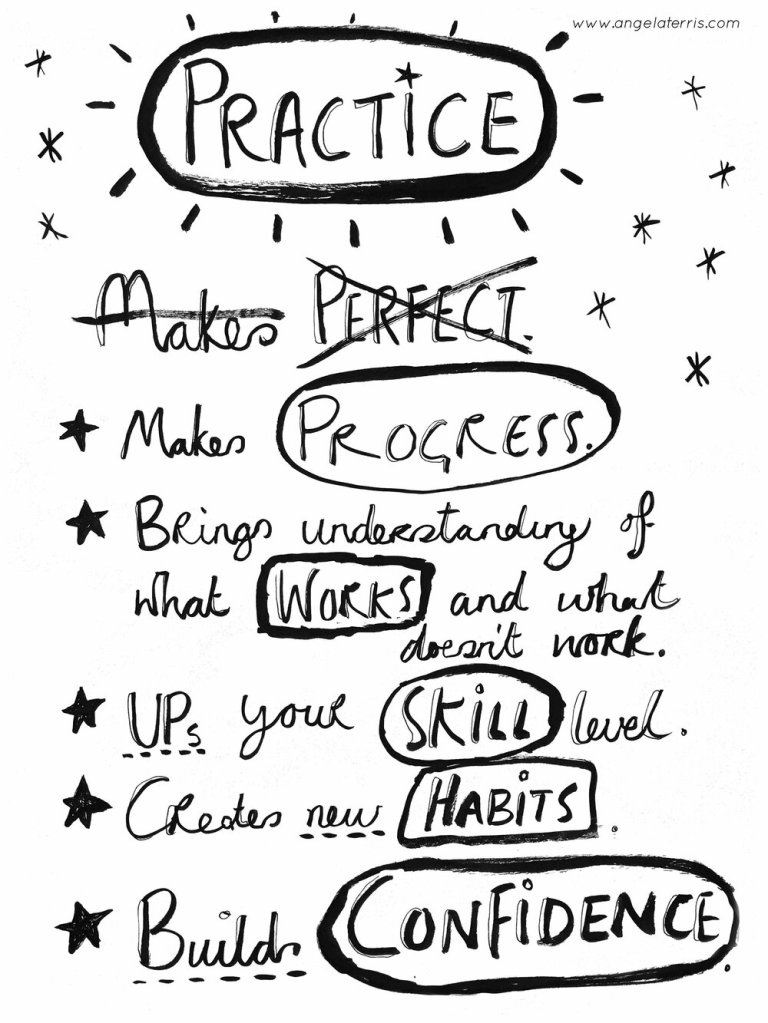 www.angelaterris.com
PRACTiCE
Makes PERFECT.
Makes PROGRESS.
Brings understanding of
what WORKS and what
doesn't work.
UPs your SKiLL level.
Creates new HABiTS.
Builds CONFiDENCE.